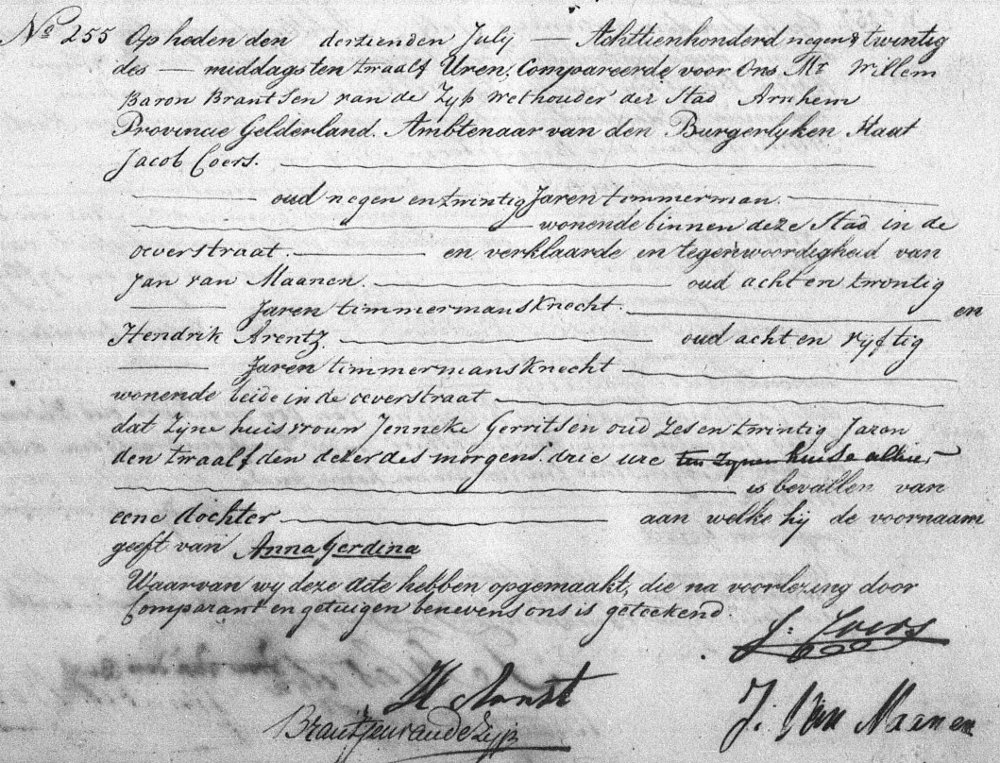 No 255 Op heden den derzienden July — Achttienhonderd negen & twintig
des — middags ten twaalf Uren, Compareerde voor Ons Mr Willem
Baron Brantsen van de Zyp Wethouder der Stad Arnhem
Provincie Gelderland. Ambtenaar van den Burgerlyken Staat
Jacob Coers.
oud negen en twintig Jaren timmerman.
wonende binnen deze Stad in de
oeverstraat. en verklaarde in tegenwoordigheid van
Jan van Maanen. oud acht en twintig
Jaren timmermansknecht. en
Hendrik Arentz. oud acht en vyftig
Jaren timmermansknecht
wonende beide in de oeverstraat
dat zyne huisvrouw Jenneke Gerritsen oud zes en twintig Jaren
den twaalfden dezer des morgens drie ure ten zynen huise alhier
is bevallen van
eene dochter aan welke hij de voornaam
geeft van Anna Gerdina
Waarvan wy deze Acte hebben opgemaakt, die na voorlezing door
Comparant en getuigen benevens ons is geteekend.
J: Coers
H Arnst
Brantsen van de Zyp
J: Van Maanen